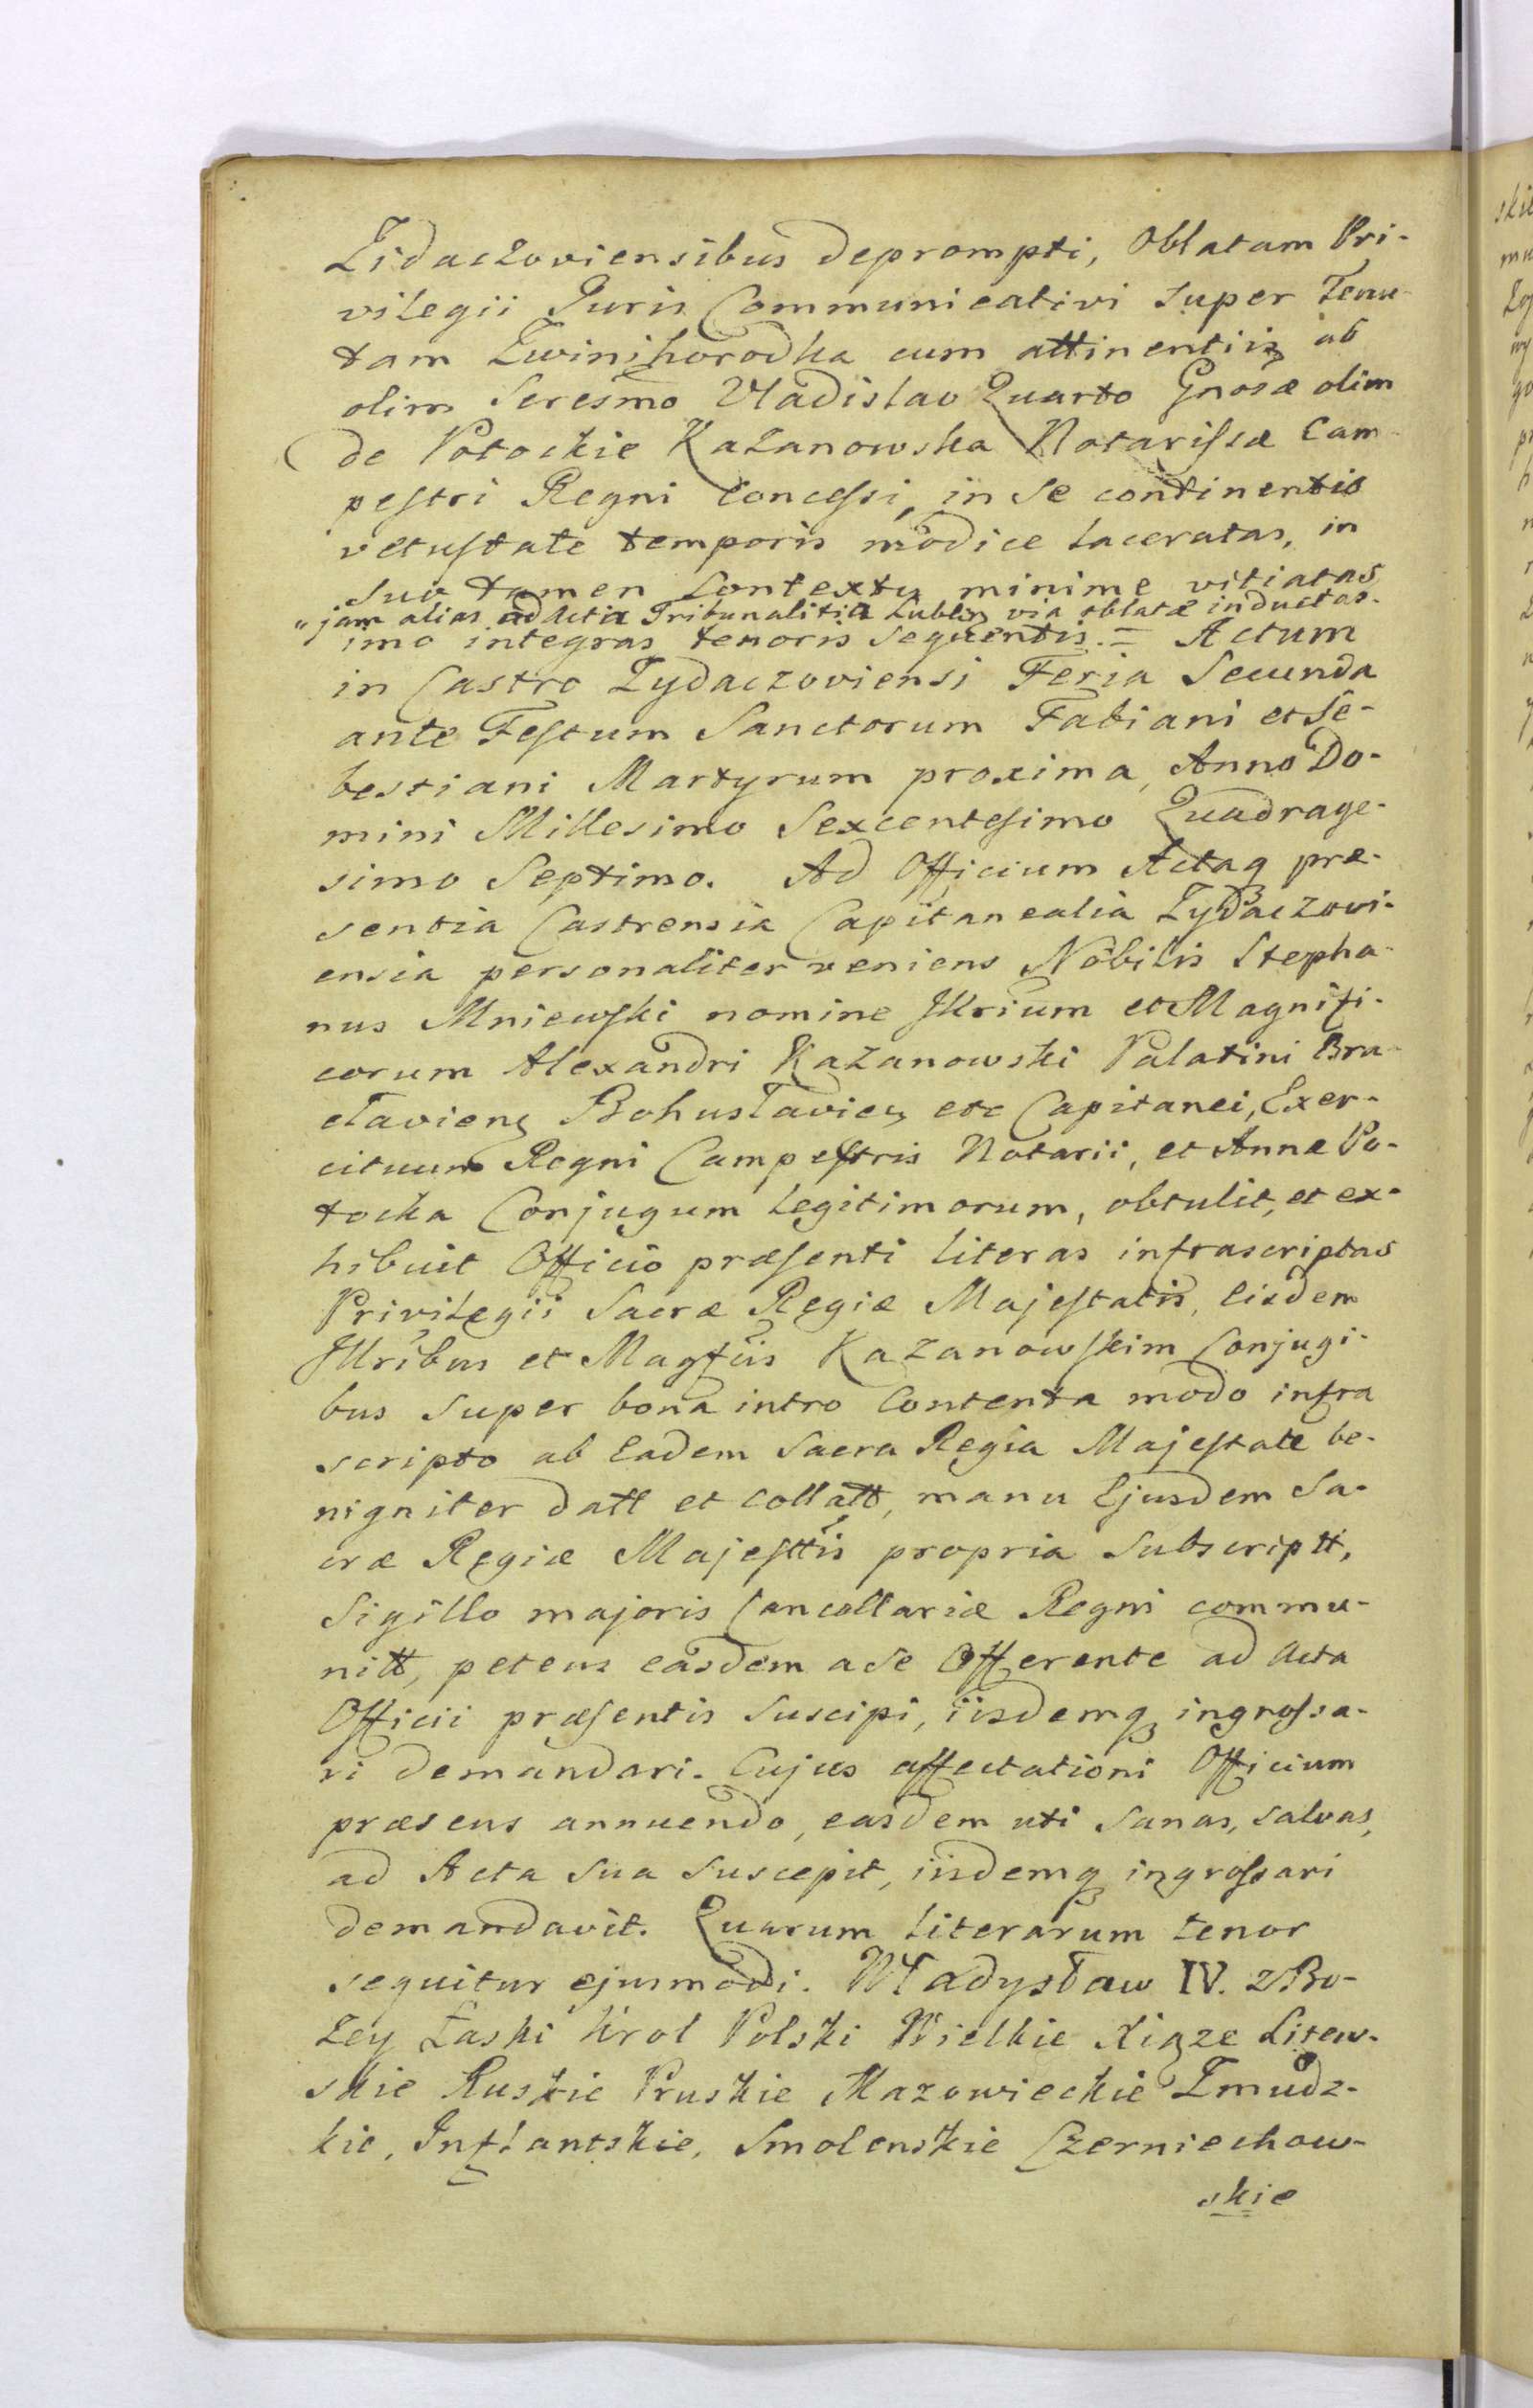 Zidaczoviensibus deprompti, Oblatam Pri-
vilegii Juris Communicativi super Tenu-
tam Zwinihorodka cum attinentiis ab
olim Seresmo Vladislao Quarto Gnosæ olim
de Potockie Kazanowska Notarissæ Cam-
pestri Regni Concessi, in se continentis
vetustate temporis modice laceratas, in
suo tamen Contextu minime vitiatas
"jam alias ad Acta Tribunalitia Lublin via oblatæ inductas.
imo integras tenoris sequentis. = Actum
in Castro Zydaczoviensi Feria Secunda
ante Festum Sanctorum Fabiani et Se-
bestiani Martyrum proxima, Anno Do-
mini Millesimo Sexcentesimo Quadrage-
simo Septimo. Ad Officium Actaq præ-
sentia Castrensia Capitanealia Zydaczovi-
ensia personaliter veniens Nobilis Stepha-
nus Mniewski nomine Illrium et Magnifi-
corum Alexandri Kazanowski Palatini Bra-
claviens Bohuslavien etc Capitanei, Exer-
cituum Regni Campestris Notarii, et Annæ Po-
tocka Conjugum legitimorum, obtulit, et ex-
hibuit Officio præsenti literas infrascriptas
Privilegii Sacræ Regiæ Majestatis, Eisdem
Illribus et Magfcis Kazanowskim Conjugi-
bus super bona intro Contenta modo infra
scripto ab Eadem Sacra Regia Majestate be-
nigniter datt et collatt, manu Ejusdem Sa-
cræ Regiæ Majesttis propria Subscriptt,
Sigillo majoris Cancellariæ Regni commu-
nitt, petens easdem a se Offerente ad Acta
Officii præsentis suscipi, iisdemq ingrossa-
ri demandari. Cujus affectationi Officium
præsens annuendo, easdem uti sanas, salvas,
ad Acta sua suscepit, iisdemq ingrossari
demandavit. Quarum literarum tenor
sequitur ejusmodi. Władysław IV. z Bo-
żey Łaski Krol Polski Wielkie Xiąze Litew-
skie Ruskie Pruskie Mazowieckie Zmudz-
kie, Inflantskie, Smolenskie Czerniechow-
skie